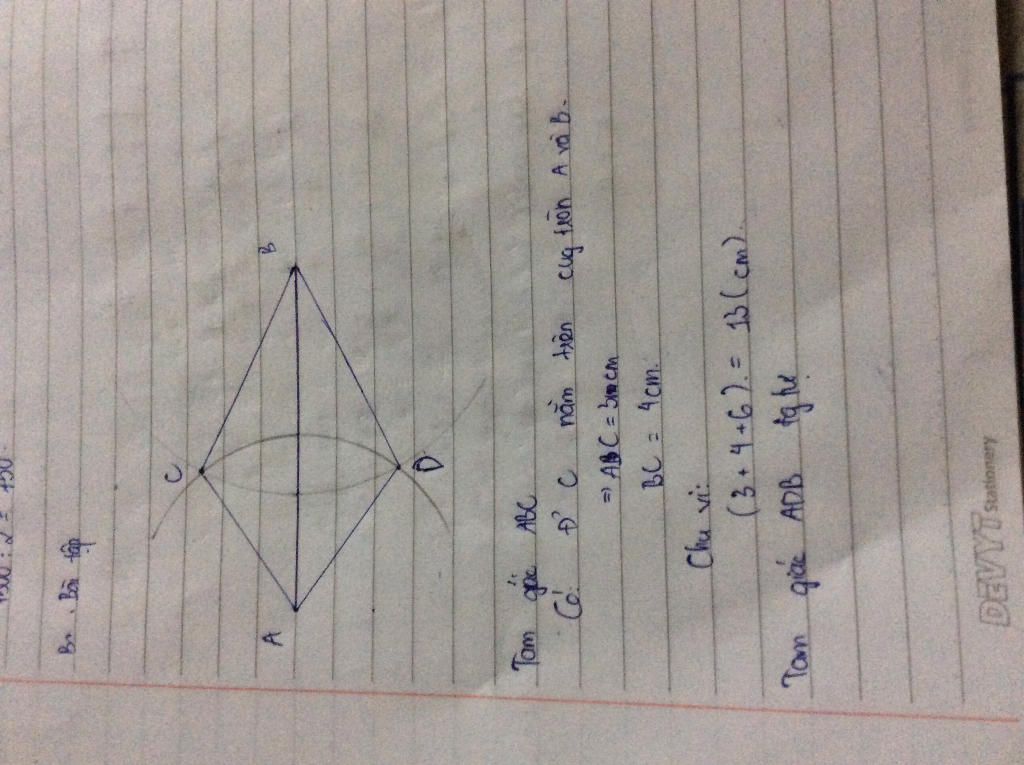 B₁. Bài tập
C
A
B
D
Tam gác ABC
Có: Đ' C nằm trên cug tròn A và B.
⇒ ABC = 3 cm
BC = 4 cm.
Chu vi:
(3 + 4 + 6). = 13 (cm).
Tam giác ADB tg tự.
DEVYT Stationery